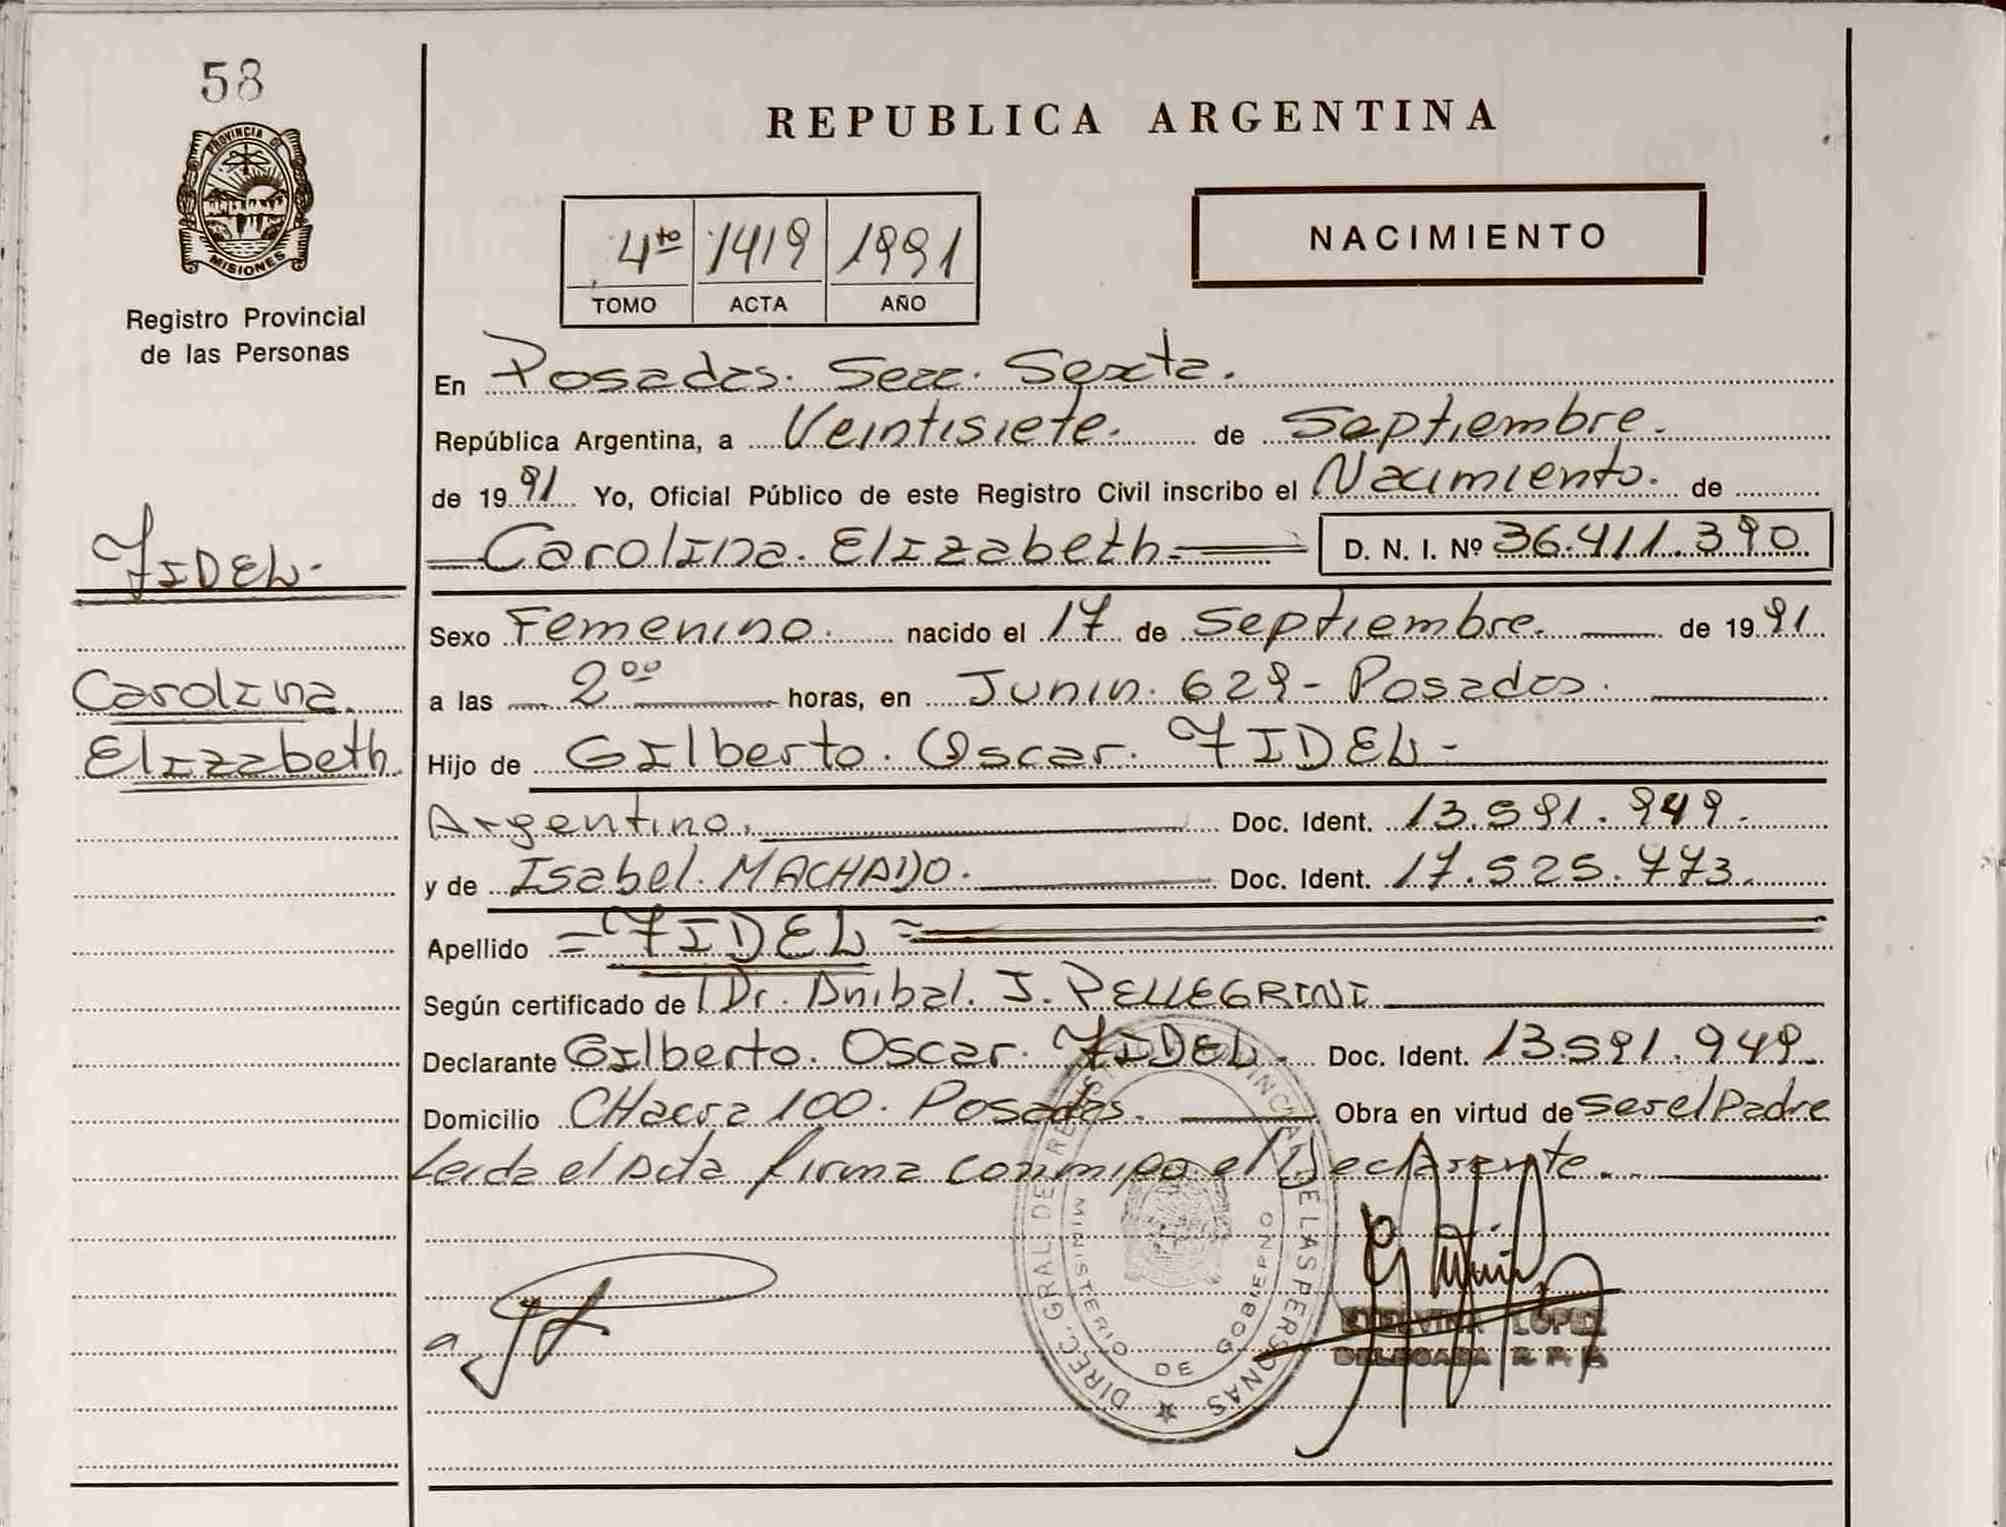 58
PROVINCIA DE
MISIONES
Registro Provincial
de las Personas
FIDEL.
Carolina
Elizabeth
REPUBLICA ARGENTINA
4to 1419 1991
TOMO ACTA AÑO
NACIMIENTO
En Posadas. Secc. Sexta.
República Argentina, a Veintisiete. de Septiembre.
de 1991 Yo, Oficial Público de este Registro Civil inscribo el Nacimiento. de
Carolina. Elizabeth. D. N. I. Nº 36.411.390
Sexo Femenino. nacido el 17 de Septiembre. de 1991
a las 2 00 horas, en Junin. 629 - Posadas.
Hijo de Gilberto. Oscar. FIDEL -
Argentino. Doc. Ident. 13.591.949.
y de Isabel. MACHADO. Doc. Ident. 17.525.773.
Apellido = FIDEL =
Según certificado de Dr. Anibal. J. PELLEGRINI
Declarante Gilberto. Oscar. FIDEL. Doc. Ident. 13.591.949.
Domicilio CHacra 100. Posadas. Obra en virtud de ser el Padre
Leida el Acta firma conmigo el Declarante.
DIREC. GRAL. DE REGISTRO PROVINCIAL DE LAS PERSONAS
MINISTERIO DE GOBIERNO
LOPEZ
DELEGADA R. P. P.